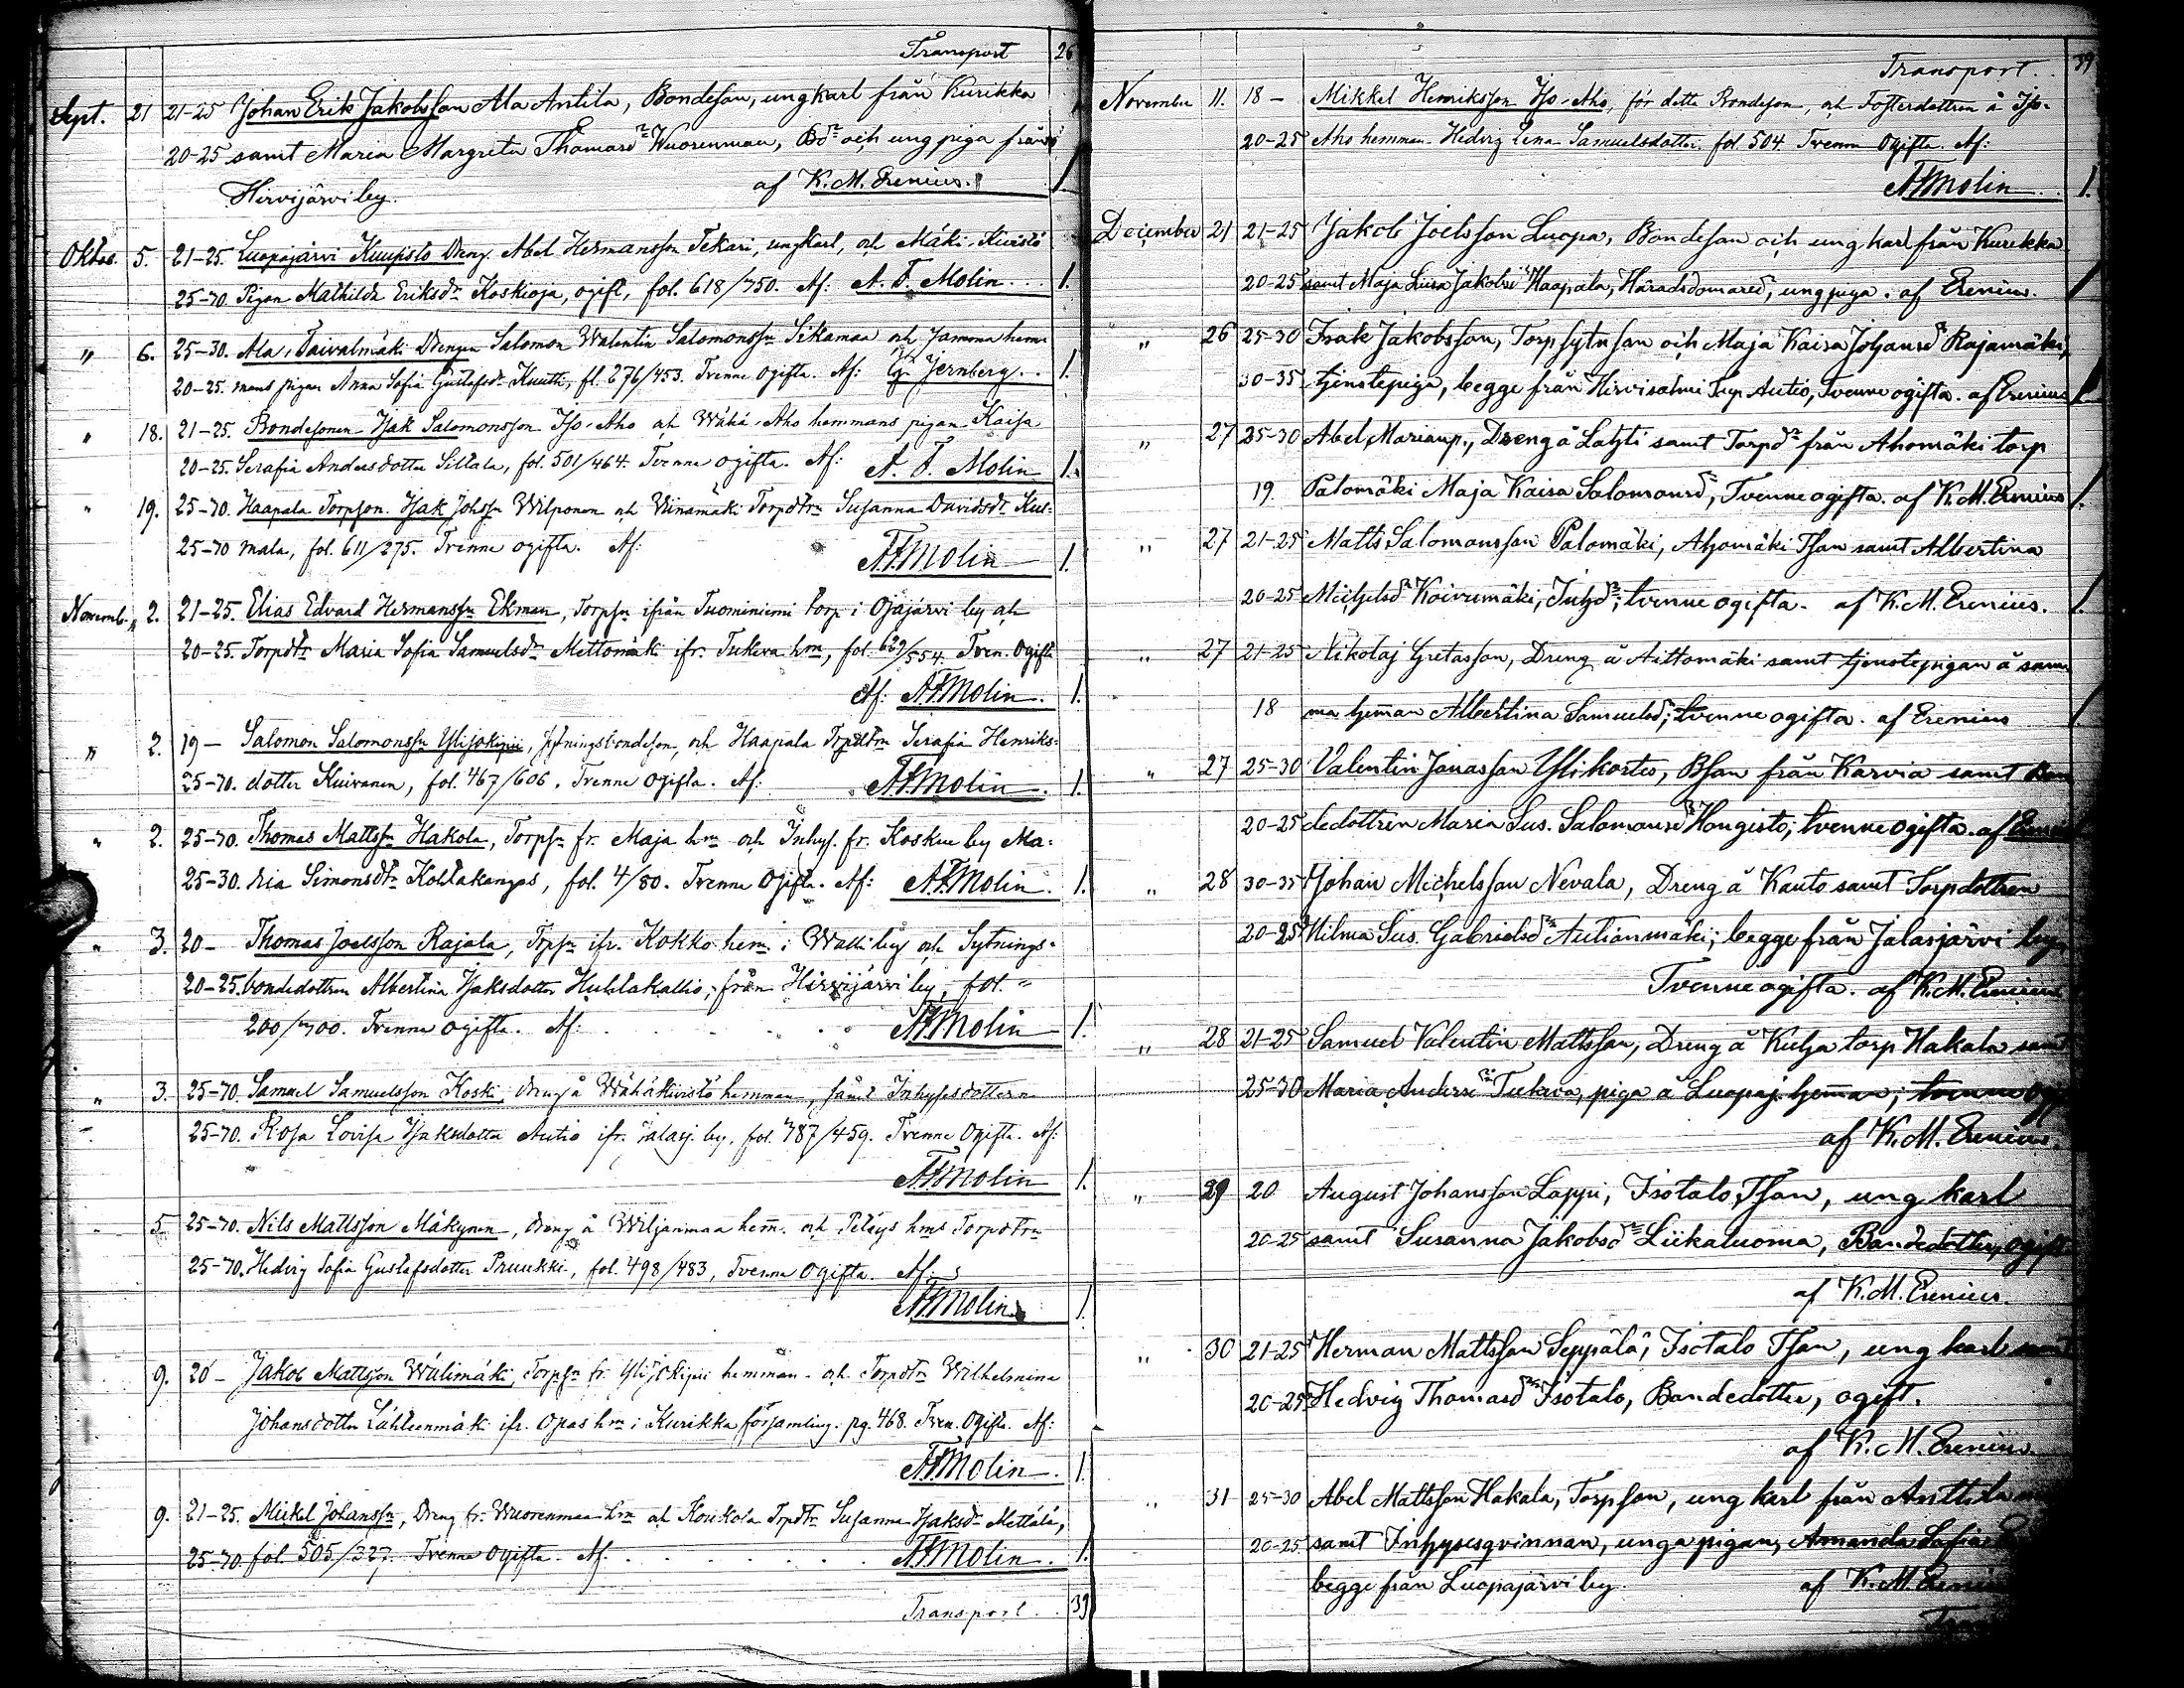 Transport 26
Sept. 21 21-25 Johan Erik Jakobsson Ala Antila, Bondeson, ung karl från Kurikka
20-25 samt Maria Margreta Thomasdr Wuorenmaa, Bdr och ung piga från
Hirvijärvi by. af K. M. Erenius. 1
Oktob. 5. 21-25. Luopajärvi Kuupisto Dreng. Abel Hermansson Tekari, ungkarl, och Mäki-Kivistö
25-70. Pigan Mathilda Eriksdr Koskioja, ogift, fol. 618/750. Af: A. F. Molin 1.
" 6. 25-30. Ala-Taivalmäki Drengen Salomon Walentin Salomonssn Sikamaa och samma hem-
20-25. mans pigan Anna Sofia Gustafsdr Knutti, fl. 676/453. Tvenne ogifta. Af: G. Jernberg. 1.
" 18. 21-25. Bondesonen Isak Salomonsson Iso-Aho och Wähä-Aho hemmans pigan Kaisa
20-25. Serafia Andersdotter Sillala, fol. 501/464. Tvenne ogifta. Af: A. F. Molin 1.
" 19. 25-70. Haapala Torpson. Isak Johssn Wilponen och Wiinamäki Torpdtrn Susanna Davidsdr Kul-
25-70 mala, fol. 611/275. Tvenne ogifta. Af: A.F.Molin 1.
Novemb. 2. 21-25. Elias Edvard Hermanssn Ekman, Torpsn ifrån Tuominiemi torp i Ojajärvi by och
20-25. Torpdtr Maria Sofia Samuelsdr Mettomäki ifr. Tukeva hm, fol. 629/554. Tven. Ogifta
Af: A.F.Molin. 1.
" 2. 19- Salomon Salomonssn Ylijokipii, sytningsbondeson, och Haapala Trpdtrn Serafia Henriks-
25-70. dotter Kuivanen, fol. 467/606. Tvenne ogifta. Af: A.F.Molin. 1.
" 2. 25-70. Thomas Mattssn Hakola, Torpsn fr. Maja hm och Inhys. fr. Koskue by Ma-
25-30. ria Simonsdtr Kohtakangas, fol. 4/80. Tvenne Ogifta. Af: A.F.Molin. 1.
" 3. 20- Thomas Joelsson Rajala, Torpsn ifr. Kokko hem. i Walli by och Sytnings-
20-25. bondedottren Albertina Isaksdotter Huhtakallio, från Hirvijärvi by, fol.
200/700. Tvenne ogifta. Af: A.F.Molin 1.
" 3. 25-70. Samuel Samuelsson Koski, dreng å Wähäkivistö hemman, samt Inhysesdotteren
25-70. Rosa Lovisa Isaksdotter Autio ifr. Jalasj. by, fol. 787/459. Tvenne Ogifta. Af:
A.F.Molin 1.
" 5. 25-70. Nils Mattsson Mäkynen, dreng å Wiljanmaa hem. och Peläys hms Torpdtrn
25-70. Hedvig Sofia Gustafsdotter Pruukki, fol. 498/483, Tvenne Ogifta. Af:
A.F.Molin. 1.
9. 20- Jakob Mattsson Wälimäki, Torpsn fr. Ylijokipii hemman och Torpdtrn Wilhelmina
Johansdotter Lähteenmäki ifr. Opas hm i Kurikka församling. pg. 468. Tven. Ogifta. Af:
A.F.Molin. 1.
9. 21-25. Mickel Johanssn, Dreng fr. Wuorenmaa hm och Koukola Trpdtr Susanna Isaksdr Mettälä,
25-70 fol. 505/327. Tvenne ogifta. Af. A.F.Molin. 1.
Transport 39
Transport. 39
November 11. 18- Mikkel Henriksson Iso-Aho, för detta Bondeson, och Fosterdottren å Iso-
20-25 Aho hemman Hedvig Lena Samuelsdotter, fol. 504. Tvenne Ogifta. Af:
A.F.Molin 1.
December 21 21-25 Jakob Joelsson Luopa, Bondeson och ung karl från Kurikka
20-25 samt Maja Liisa Jakobsdr Haapala, Häradsdomaredr, ung piga. af Erenius. 1
" 26 25-30 Isak Jakobsson, Torpsytnson och Maja Kaisa Johansdr Rajamäki,
30-35 tjenstepiga, begge från Hirvisalmi torp Autio, Tvenne ogifta. af Erenius 1
" 27 25-30 Abel Mariaup., Dreng å Lahti samt Torpdr från Ahomäki torp
19 Palomäki Maja Kaisa Salomonsdr, Tvenne ogifta. af K.M.Erenius 1.
" 27 21-25 Matts Salomonsson Palomäki, Ahomäki Tson samt Albertina
20-25 Michelsdr Koivumäki, Inhdr; tvenne ogifta. af K.M.Erenius. 1.
" 27 21-25 Nikolaj Gretasson, Dreng å Aittomäki samt tjenstepigan å sam-
18 ma heman Albertina Samuelsdr; tvenne ogifta. af Erenius 1
" 27 25-30 Valentin Jonasson Ylikortes, Bson från Karvia samt Bon
20-25 dedottren Maria Sus. Salomonsdr Hongisto; tvenne ogifta. af
" 28 30-35 Johan Michelsson Nevala, Dreng å Kauto samt Torpdottren
20-25 Hilma Sus. Gabrielsdr Autianmäki; begge från Jalasjärvi by.
Tvenne ogifta. af K.M.Erenius.
" 28 21-25 Samuel Valentin Mattsson, Dreng å Kulja torp Hakala samt
25-30 Maria Andersdr Tukeva, piga å Luopaj. heman; tvenne
af K.M.Erenius.
" 29 20 August Johansson Lappi, Isotalo Tson, ung karl
20-25 samt Susanna Jakobsdr Liikaluoma, Bondedotter, ogift
af K.M.Erenius.
" 30 21-25 Herman Mattsson Seppälä, Isotalo Tson, ung karl samt
20-25 Hedvig Thomasdr Isotalo, Bondedotter, ogift.
af K.M.Erenius.
" 31 25-30 Abel Mattsson Hakala, Torpson, ung karl från Anttila
20-25 samt Inhysesqvinnan, unga pigan, Amanda Sofia
begge från Luopajärvi by. af K.M.Erenius